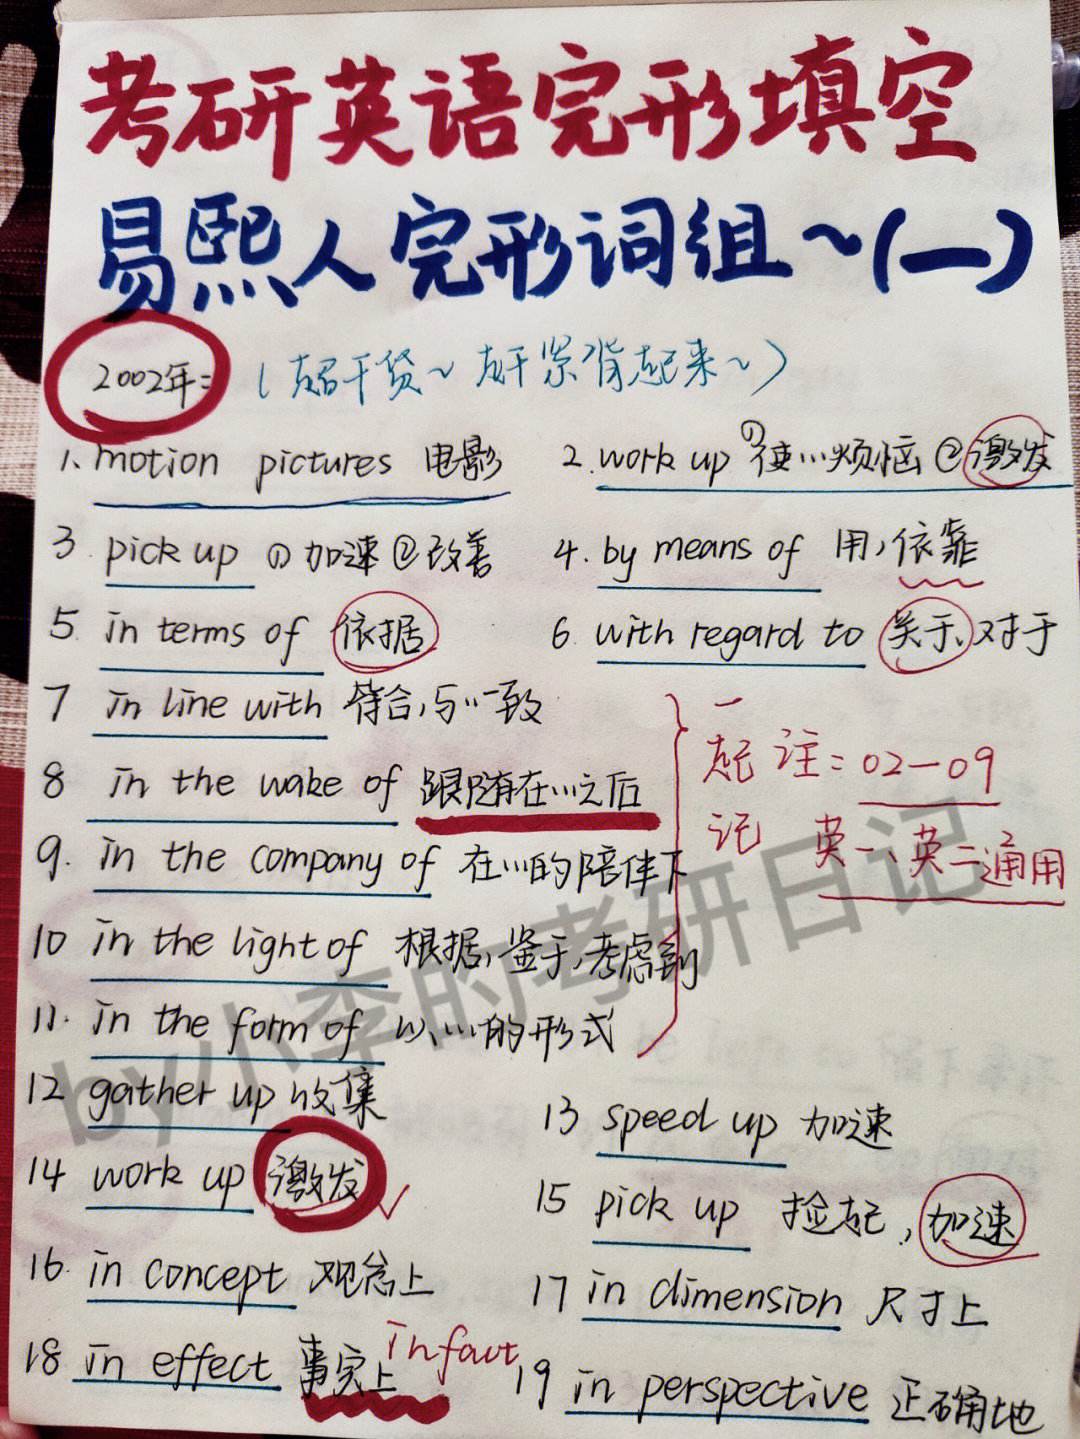 考研英语完形填空
易熙人完形词组~(一)
2002年: (超干货~ 赶紧背起来~)
1、motion pictures 电影 2. work up ①使…烦恼 ②激发
3. pick up ①加速②改善 4. by means of 用,依靠
5. in terms of 依据 6. with regard to 关于、对于
7 in line with 符合,与…一致
8 in the wake of 跟随在…之后
9. in the company of 在…的陪伴下
10 in the light of 根据,鉴于,考虑到
11. in the form of 以…的形式
一起记 注: 02—09
英一、英二通用
12 gather up 收集 13 speed up 加速
14 work up 激发 15 pick up 捡起,加速
16. in concept 观念上 17 in dimension 尺寸上
18 in effect 事实上 in fact 19 in perspective 正确地
by小李的考研日记